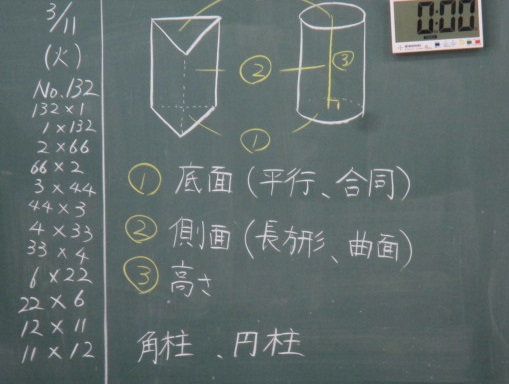 3/11
(火)
No.132
132×1
1×132
2×66
66×2
3×44
44×3
4×33
33×4
6×22
22×6
12×11
11×12
②
③
①
0:00
① 底面(平行、合同)
② 側面(長方形、曲面)
③ 高さ
角柱、円柱